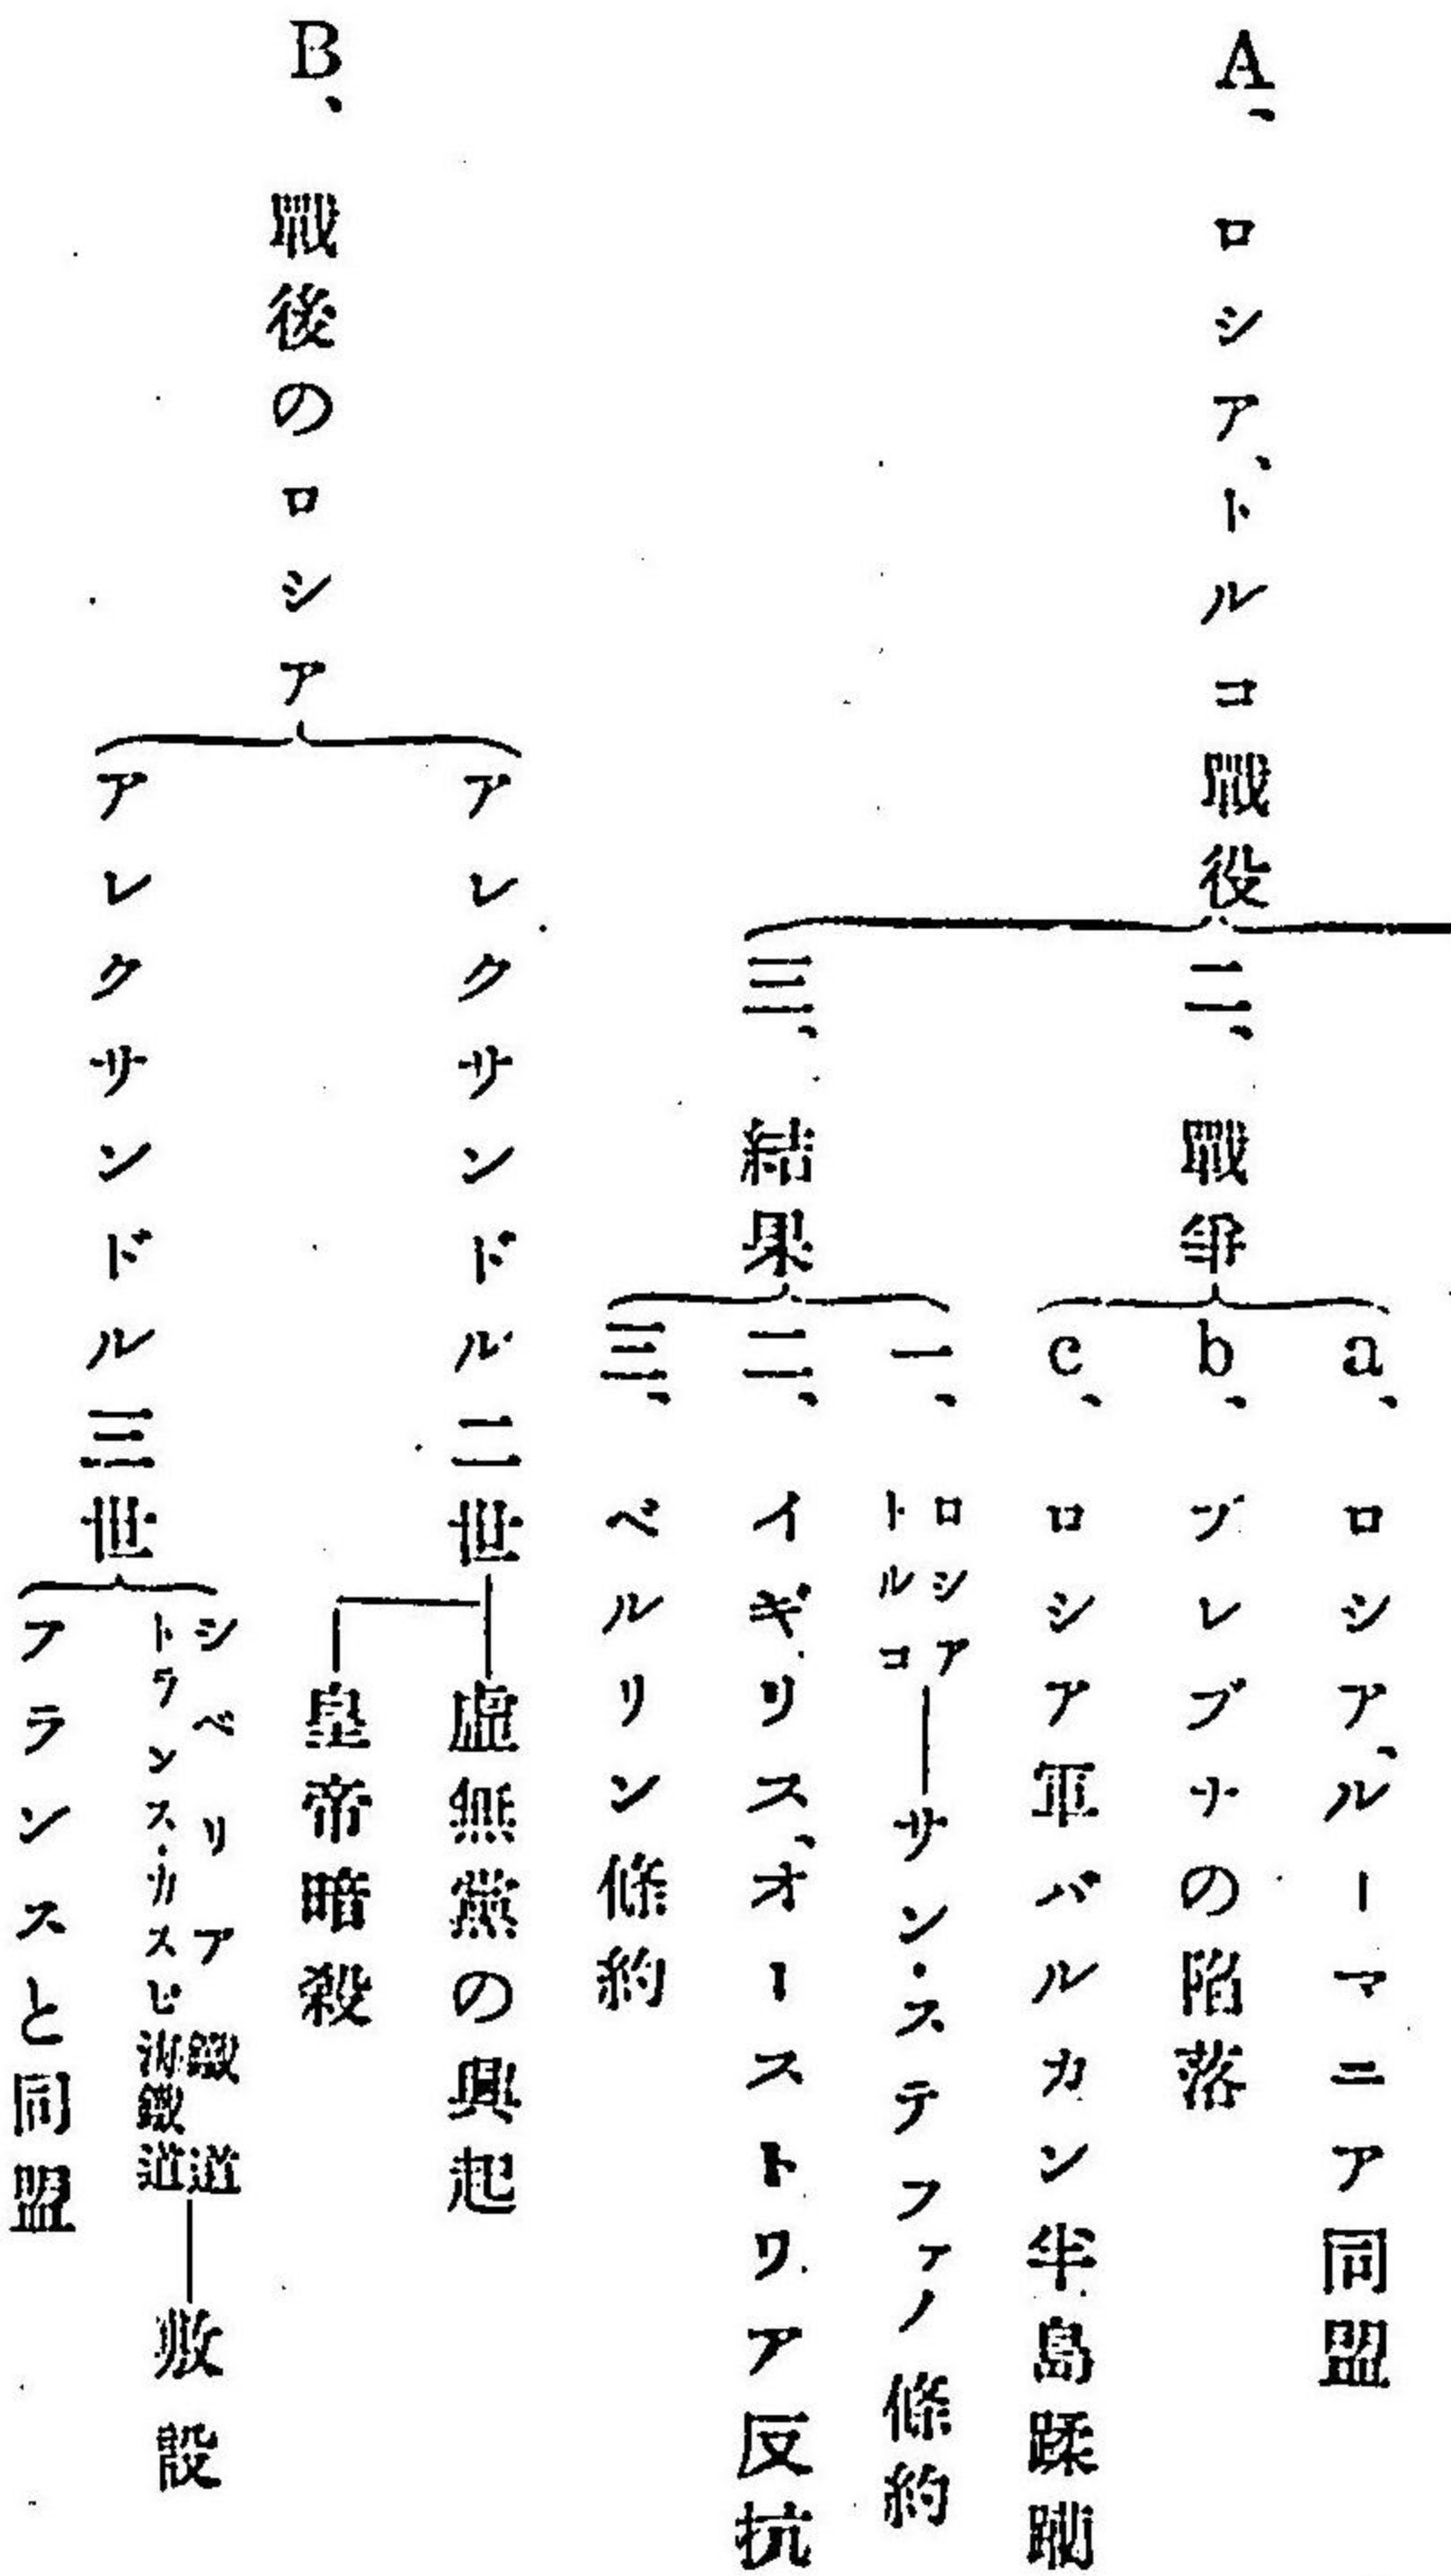 A、ロシア、トルコ戰役
二、戰爭
a、ロシア、ルーマニア同盟
b、プレブナの陷落
c、ロシア軍バルカン半島蹂躙
三、結果
一、ロシア
トルコ
サン・ステファノ條約
二、イギリス、オーストリア反抗
三、ベルリン條約
B、戰後のロシア
アレクサンドル二世
虛無黨の興起
皇帝暗殺
アレクサンドル三世
シベリア鐵道
トランス・カスピ海鐵道
敷設
フランスと同盟